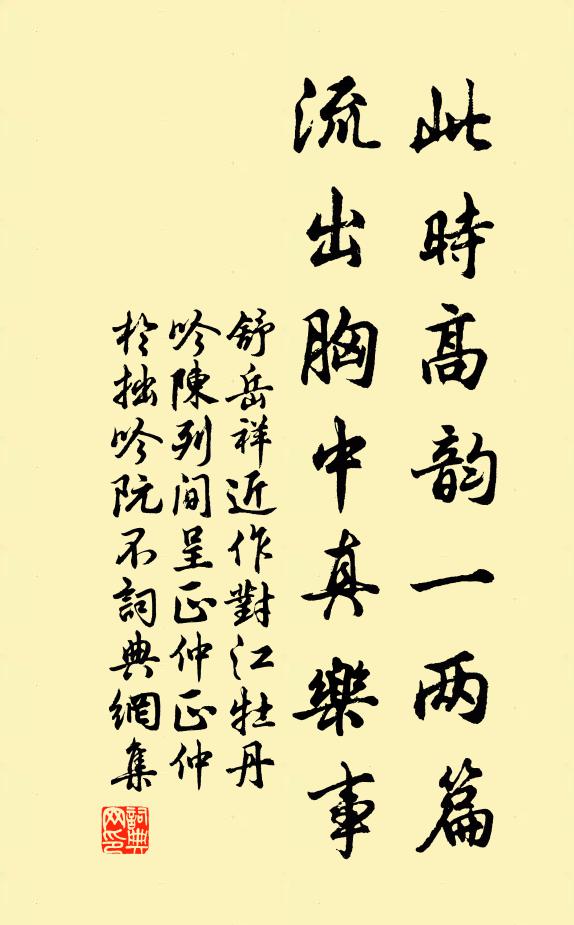 此時高韵一两篇
流出胸中真樂事
舒岳祥近作對江牡丹
吟陳列間呈正仲正仲
於拙吟阮不詞典網集
詞典網印